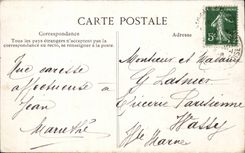 CARTE POSTALE
Correspondance
Tous les pays étrangers n'acceptent pas la
correspondance au recto, se renseigner à la poste.
Adresse
5c
Une caresse
affectueuse à
Jean
Marie
Monsieur et Madame
Epicerie Parisienne
Wassy
Hte Marne